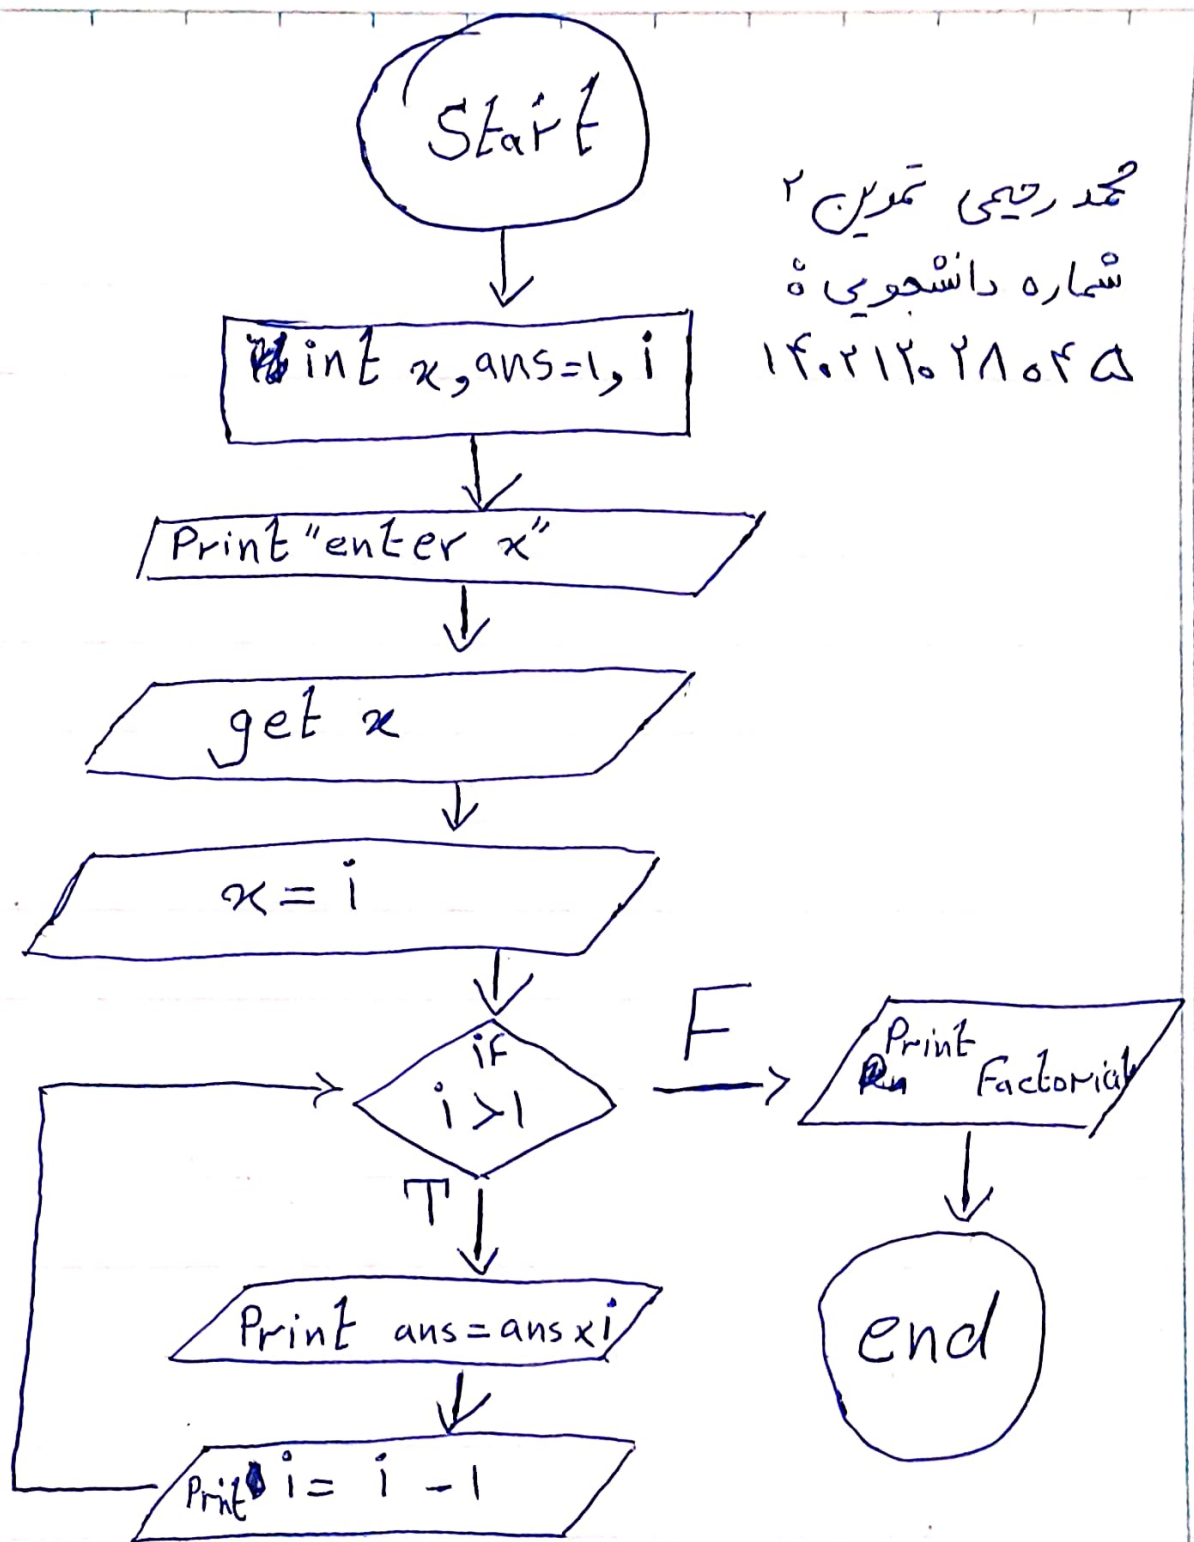 Start
محمد رحیمی تمرین ۲
شماره دانشجویی :
۱۴۰۲۱۲۰۲۸۰۴۵
int x, ans=1, i
Print "enter x"
get x
x = i
if
i > 1
F
Print
Factorial
T
Print ans = ans x i
end
Print i = i - 1